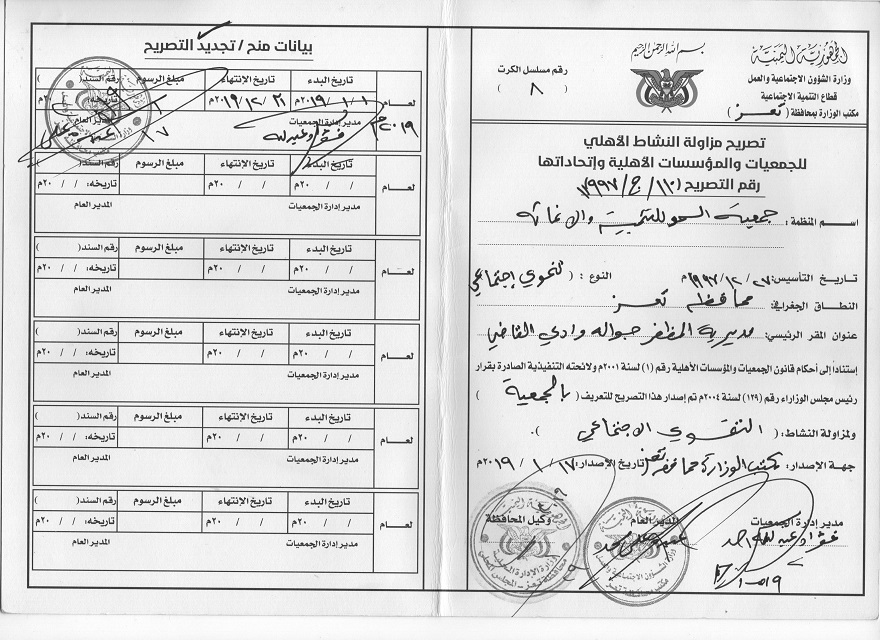 بسم الله الرحمن الرحيم
الجمهورية اليمنية
وزارة الشؤون الاجتماعية والعمل
قطاع التنمية الاجتماعية
مكتب الوزارة بمحافظة ( تعز )
رقم مسلسل الكرت
( ٨ )
تصريح مزاولة النشاط الأهلي
للجمعيات والمؤسسات الأهلية وإتحاداتها
رقم التصريح (١١٠/ج/١٩٩٧)
اسم المنظمة: جمعية السمو للتنمية والإغاثة
تاريخ التأسيس: ٢٧/١٢/١٩٩٧م النوع: ( تنموي إجتماعي
النطاق الجغرافي: محافظة تعز
عنوان المقر الرئيسي: مديرية المظفر جوالة وادي القاضي
إستناداً إلى أحكام قانون الجمعيات والمؤسسات الأهلية رقم (١) لسنة ٢٠٠١م ولائحته التنفيذية الصادرة بقرار
رئيس مجلس الوزاراء رقم (١٢٩) لسنة ٢٠٠٤م تم إصدار هذا التصريح للتعريف ( بالجمعية )
ولمزاولة النشاط: ( التنموي الاجتماعي ).
جهة الإصدار: مكتب الوزارة محافظة تعز تاريخ الإصدار: ١٧/١/٢٠١٩م
مدير إدارة الجمعيات المدير العام وكيل المحافظة
بيانات منح / تجديد التصريح
لعام تاريخ البدء تاريخ الإنتهاء مبلغ الرسوم رقم السند: ( )
٢٠١٩م ١/١/٢٠١٩م ٣١/١٢/٢٠١٩م تاريخه:
مدير إدارة الجمعيات المدير العام
لعام تاريخ البدء تاريخ الإنتهاء مبلغ الرسوم رقم السند: ( )
/ / ٢٠م / / ٢٠م تاريخه: / / ٢٠م
مدير إدارة الجمعيات المدير العام
لعام تاريخ البدء تاريخ الإنتهاء مبلغ الرسوم رقم السند: ( )
/ / ٢٠م / / ٢٠م تاريخه: / / ٢٠م
مدير إدارة الجمعيات المدير العام
لعام تاريخ البدء تاريخ الإنتهاء مبلغ الرسوم رقم السند: ( )
/ / ٢٠م / / ٢٠م تاريخه: / / ٢٠م
مدير إدارة الجمعيات المدير العام
لعام تاريخ البدء تاريخ الإنتهاء مبلغ الرسوم رقم السند: ( )
/ / ٢٠م / / ٢٠م تاريخه: / / ٢٠م
مدير إدارة الجمعيات المدير العام
لعام تاريخ البدء تاريخ الإنتهاء مبلغ الرسوم رقم السند: ( )
/ / ٢٠م / / ٢٠م تاريخه: / / ٢٠م
مدير إدارة الجمعيات المدير العام